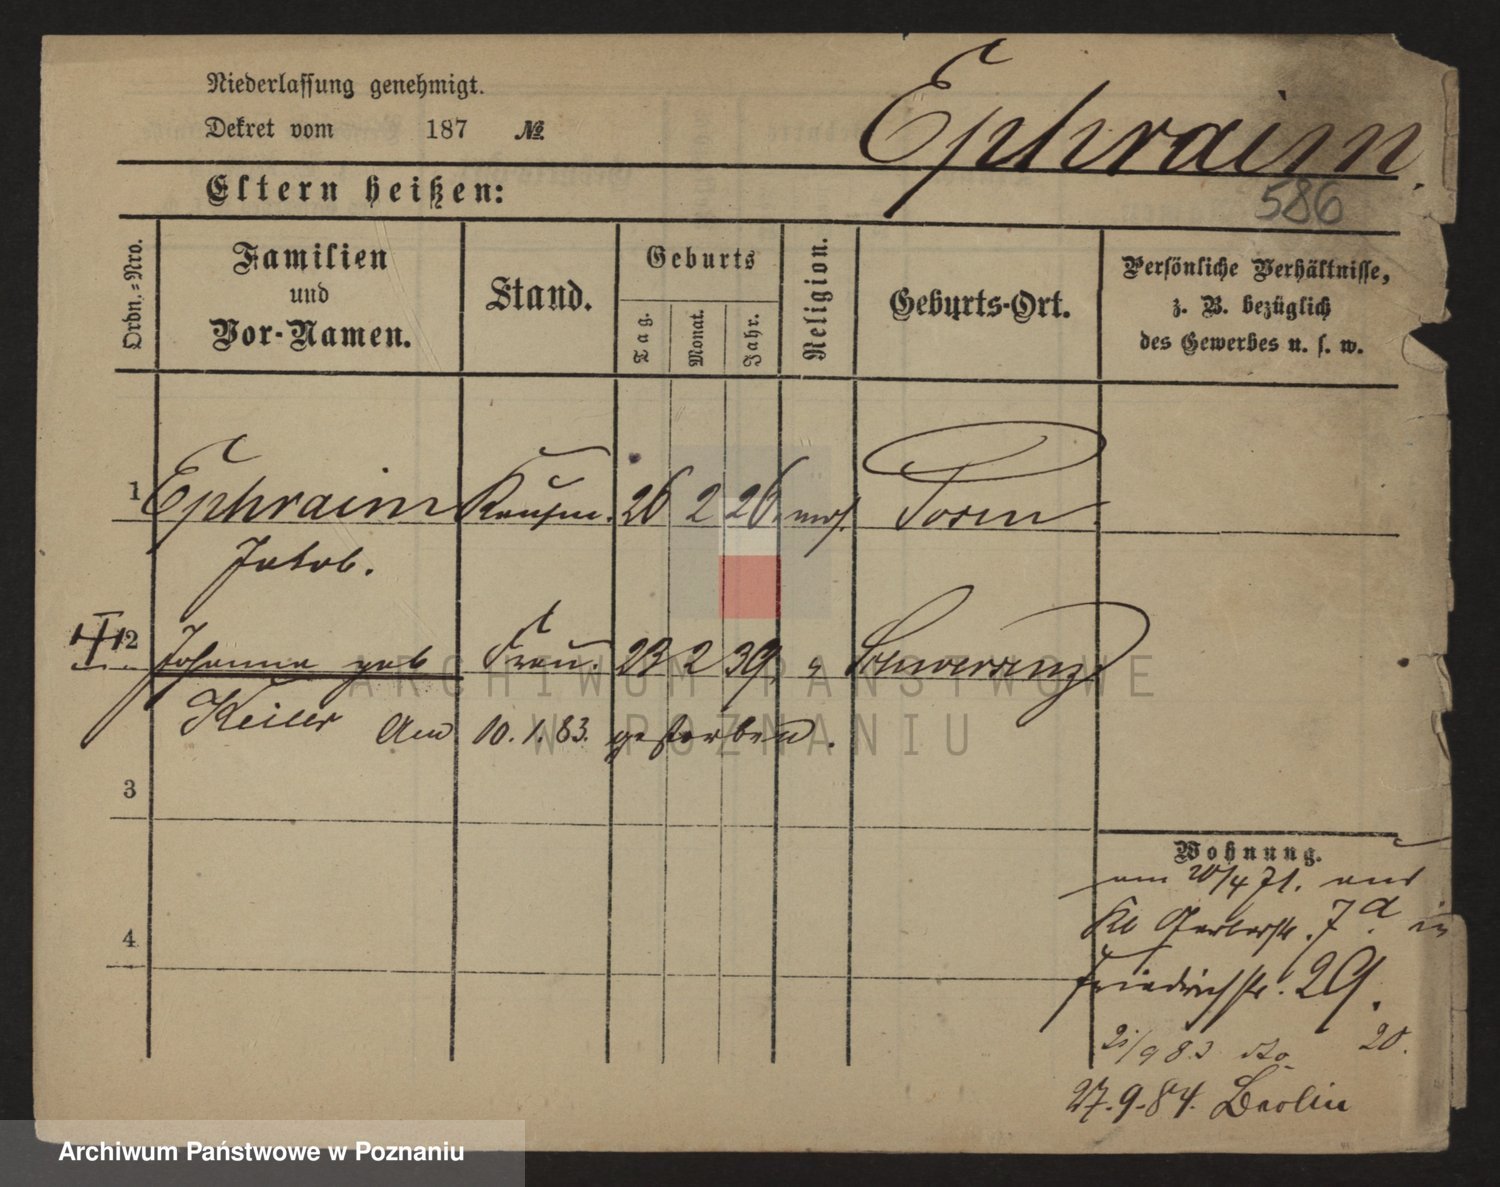 Niederlassung genehmigt.
Dekret vom 187 №
Ephraim.
586
Eltern heißen:
Ordn.-Nro.
Familien
und
Vor-Namen.
Stand.
Geburts
Tag.
Monat.
Jahr.
Religion.
Geburts-Ort.
Persönliche Verhältnisse,
z. B. bezüglich
des Gewerbes u. s. w.
1 Ephraim Kaufm. 26 2 26 mos.
Jakob.
2 Johanna geb Frau. 23 2 39 " Schwersenz
Keiler Am 10.1.83. gestorben.
3
4
Wohnung.
am 20/4 71. aus
Kl Gerberstr. 7a in
Friedrichstr. 29.
/9 83 dto 20.
27.9.84. Berlin
ARCHIWUM PAŃSTWOWE
W POZNANIU
Archiwum Państwowe w Poznaniu